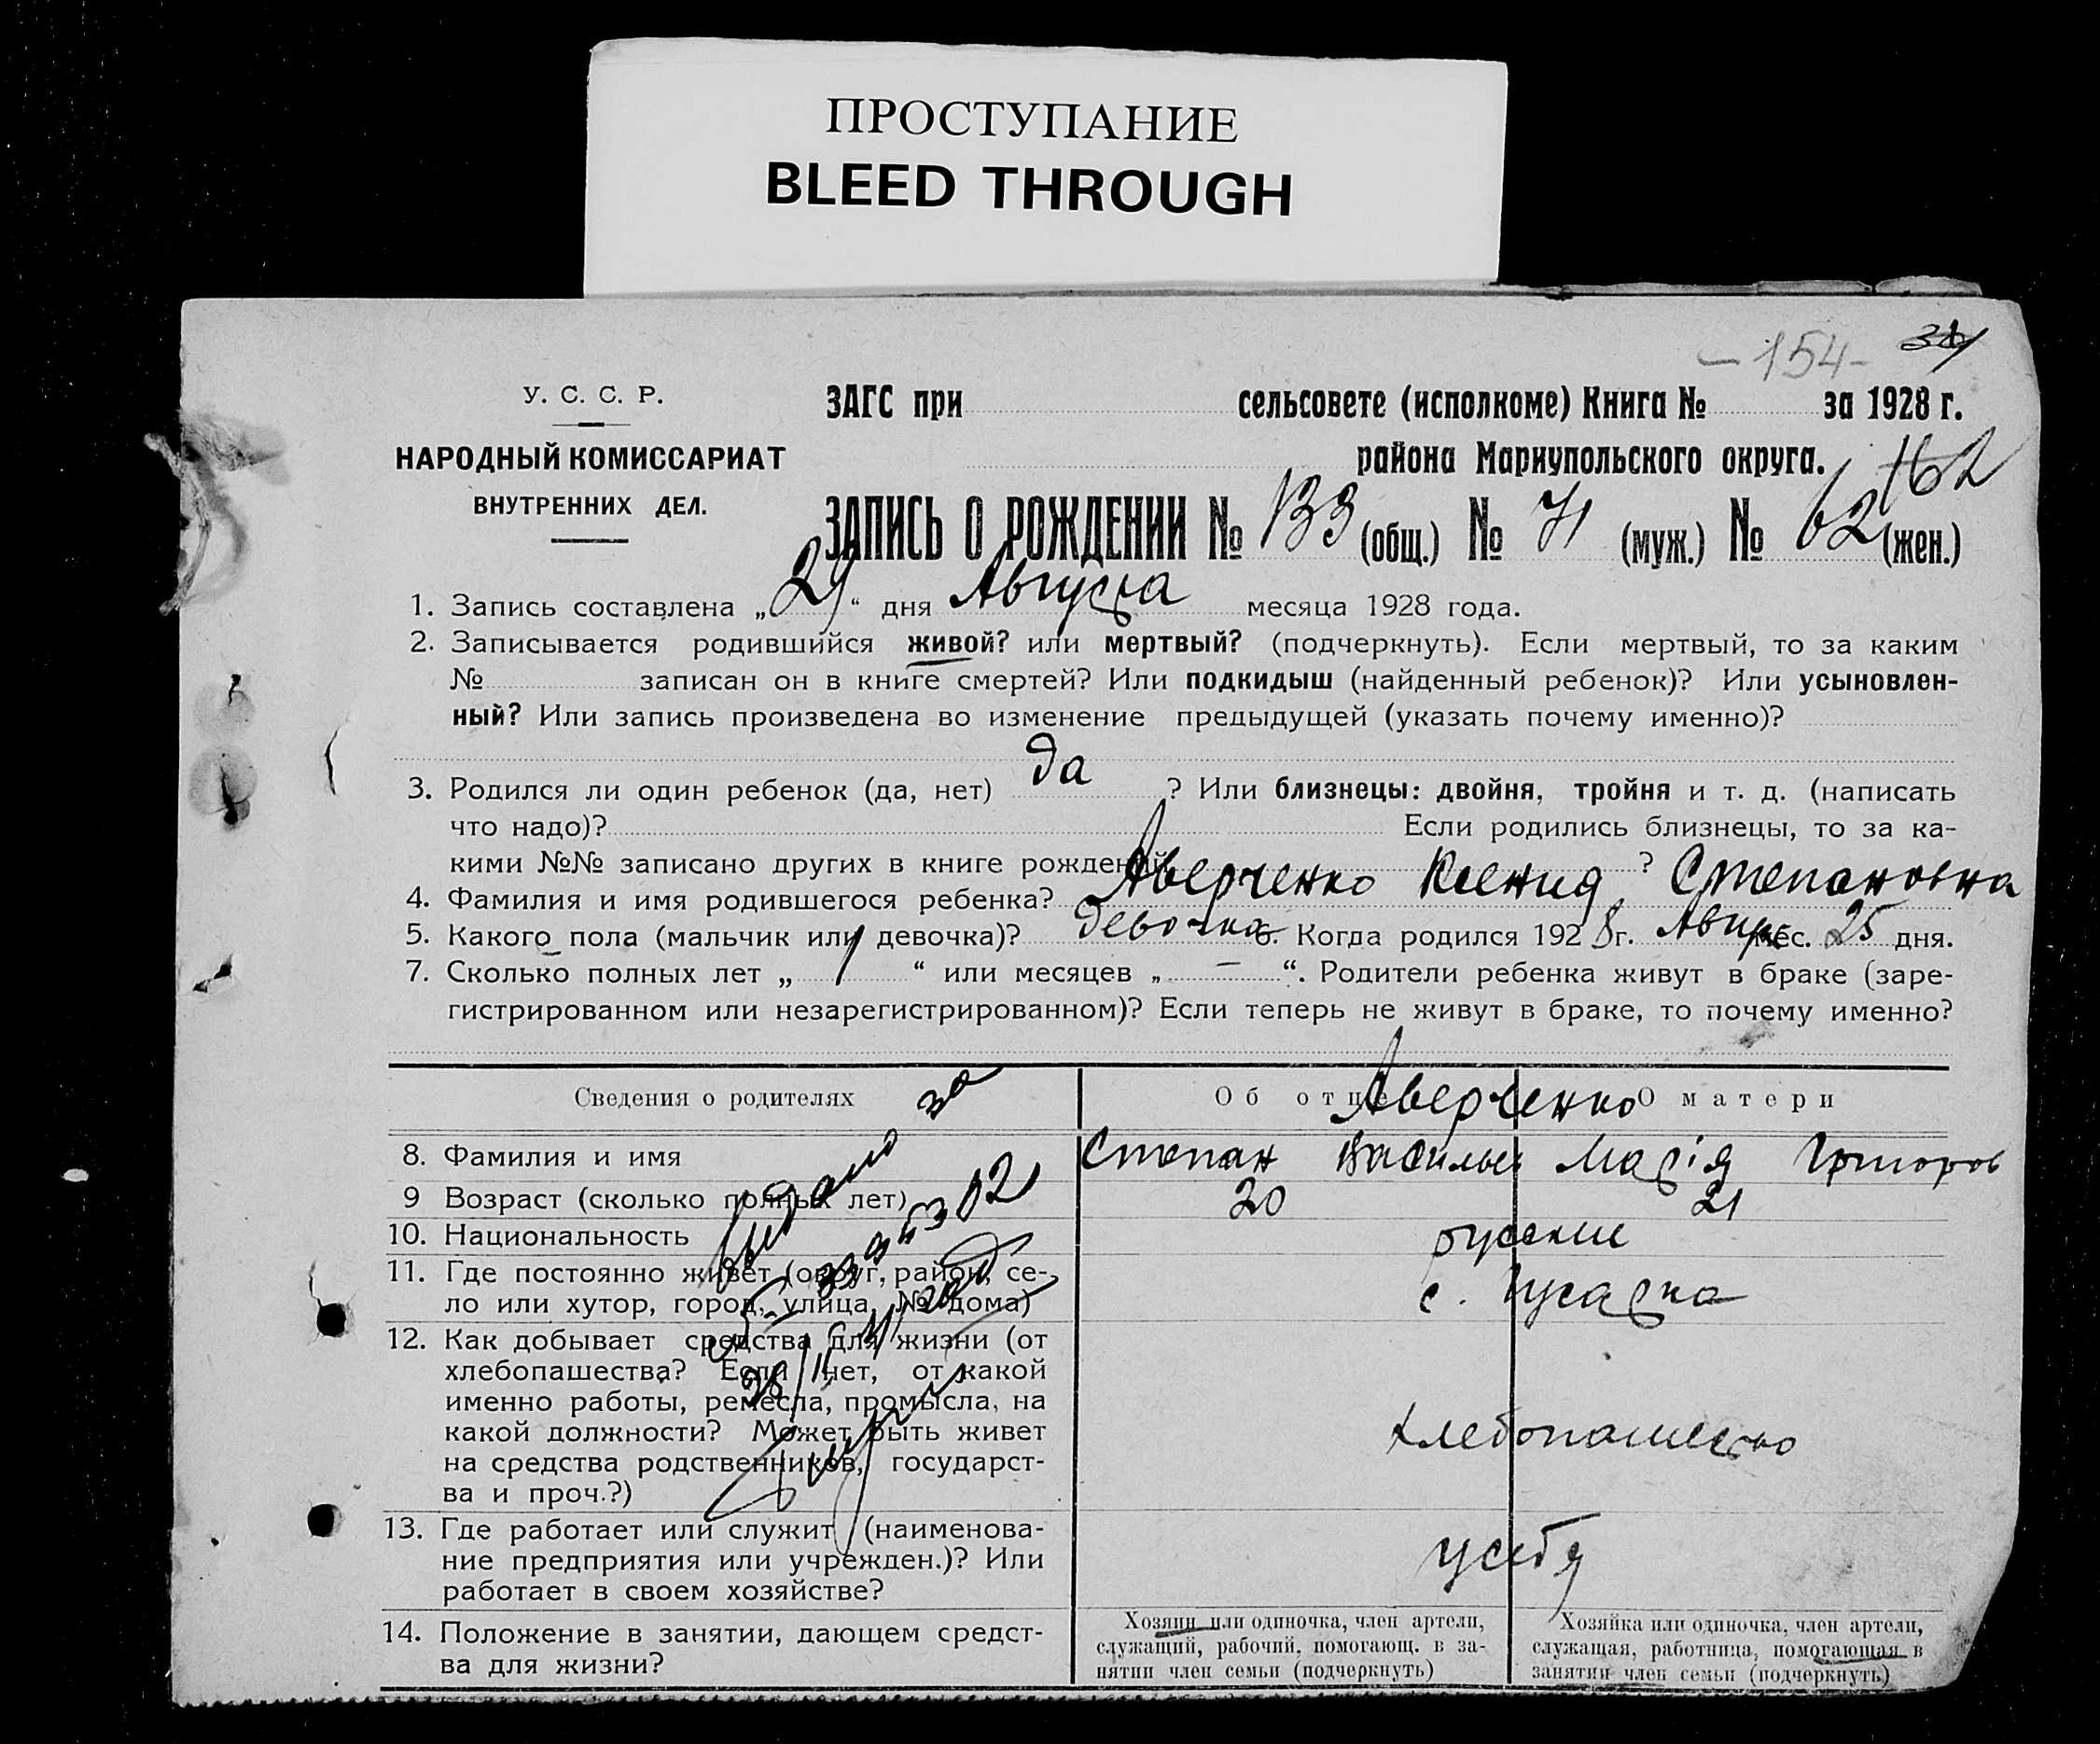 ПРОСТУПАНИЕ
BLEED THROUGH
- 154 -
У. С. С. Р.
НАРОДНЫЙ КОМИССАРИАТ
ВНУТРЕННИХ ДЕЛ.
ЗАГС при сельсовете (исполкоме) Книга № за 1928 г.
района Мариупольского округа.
162
ЗАПИСЬ О РОЖДЕНИИ № 133 (общ.) № 71 (муж.) № 62 (жен.)
1. Запись составлена „29“ дня Августа месяца 1928 года.
2. Записывается родившийся живой? или мертвый? (подчеркнуть). Если мертвый, то за каким
№ записан он в книге смертей? Или подкидыш (найденный ребенок)? Или усыновлен-
ный? Или запись произведена во изменение предыдущей (указать почему именно)?
3. Родился ли один ребенок (да, нет) да ? Или близнецы: двойня, тройня и т. д. (написать
что надо)? Если родились близнецы, то за ка-
кими №№ записано других в книге рождений ?
4. Фамилия и имя родившегося ребенка? Аверченко Ксения Степановна
5. Какого пола (мальчик или девочка)? девочка 6. Когда родился 1928 г. Август мес. 25 дня.
7. Сколько полных лет „ 1 “ или месяцев „ – “. Родители ребенка живут в браке (заре-
гистрированном или незарегистрированном)? Если теперь не живут в браке, то почему именно?
Сведения о родителях Об отце О матери
Аверченко
8. Фамилия и имя Степан Васильев Марія Григоров
9 Возраст (сколько полных лет) 20 21
10. Национальность русские
11. Где постоянно живет (округ, район, се-
ло или хутор, город, улица, № дома)
с.
12. Как добывает средства для жизни (от
хлебопашества? Если нет, от какой
именно работы, ремесла, промысла, на
какой должности? Может быть живет
на средства родственников, государст-
ва и проч.?)
хлебопашество
13. Где работает или служит (наименова-
ние предприятия или учрежден.)? Или
работает в своем хозяйстве?
у себя
14. Положение в занятии, дающем средст-
ва для жизни?
Хозяин или одиночка, член артели,
служащий, рабочий, помогающ. в за-
нятии член семьи (подчеркнуть)
Хозяйка или одиночка, член артели,
служащая, работница, помогающая в
занятии член семьи (подчеркнуть)
Выдано за